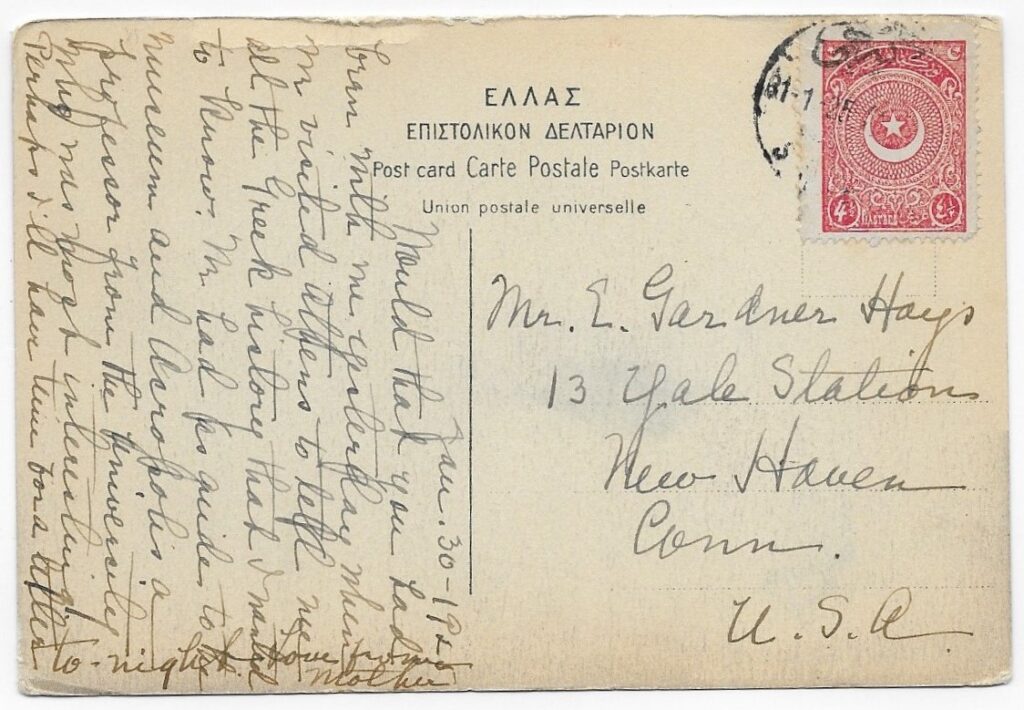 ΕΛΛΑΣ
ΕΠΙΣΤΟΛΙΚΟΝ ΔΕΛΤΑΡΙΟΝ
Post card Carte Postale Postkarte
Union postale universelle
Jan. 30-192
Would that you had
been with me yesterday when
we visited Athens to tell me
all the Greek history that I wanted
to know. We had as guide to the
museum and Acropolis a
professor from the University
who was most interesting.
Perhaps I'll have time for a letter
to-night. Love from
Mother
Mr. E. Gardner Hays
13 Yale Station
New Haven
Conn.
U. S. A
31-1
4½
PIASTRES
4½